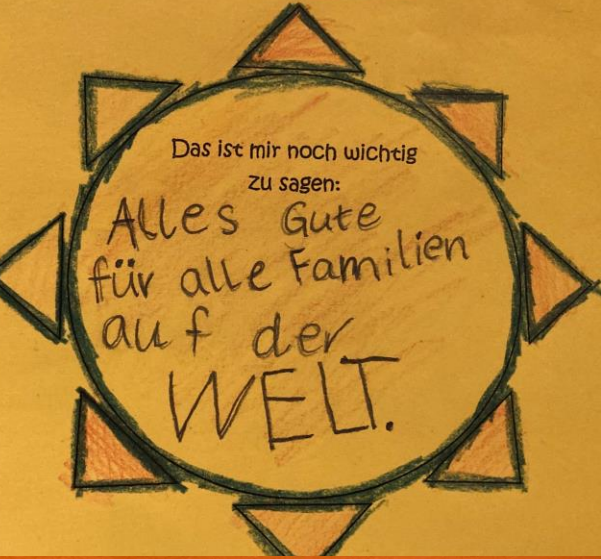 Das ist mir noch wichtig
zu sagen:
Alles Gute
für alle Familien
auf der
WELT.